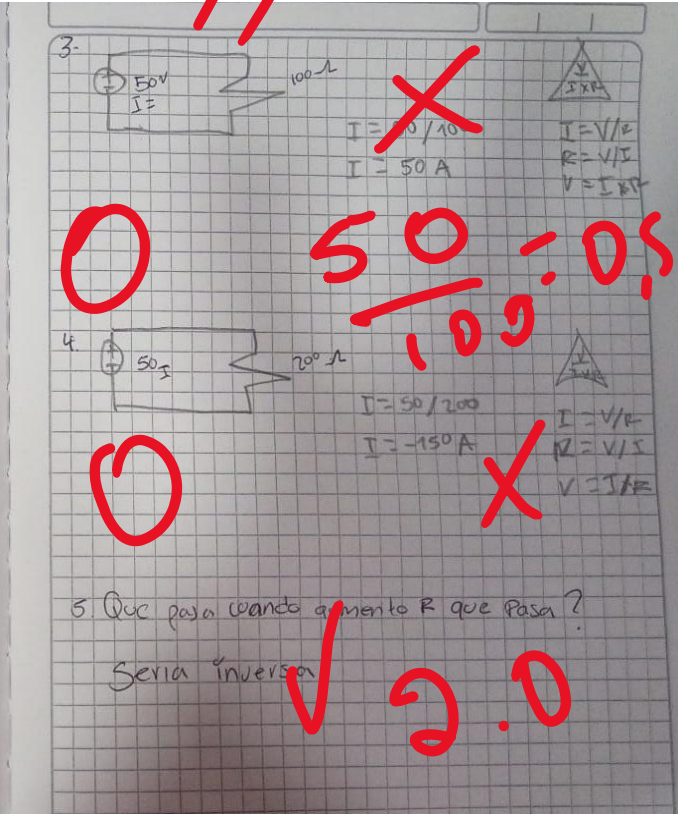 3-
50V
I=
100Ω
V
I×R
I = V/R
R = V/I
V = I×R
I = 50 A
50
100
= 0,5
0
4.
50I
200Ω
V
I = 50/200
I = -150 A
I = V/R
R = V/I
0
5. Que pasa cuando aumento R que Pasa?
Seria inversa
2.0